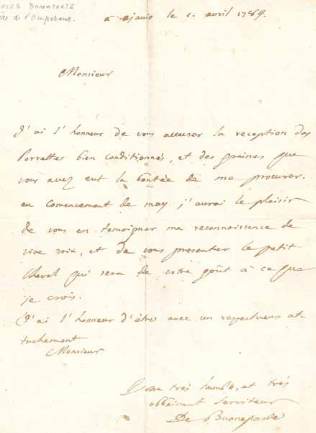 BUONAPARTE
de l'Empereur
a ajaccio le avril
Monsieur
J'ai l'honneur de vous accuser la reception des
bien conditionnés, et des graines que
vous avez eut la bontée de me procurer.
en Comencement de may j'aurai le plaisir
de vous en temoigner ma reconnaissance de
vive voix, et de vous presenter le petit
Cheval qui sera de votre goût a ce que
je crois.
J'ai l'honneur d'être avec un respectueux at
tachement
Monsieur
Votre très humble, et très
obéissant serviteur
De Buonaparte